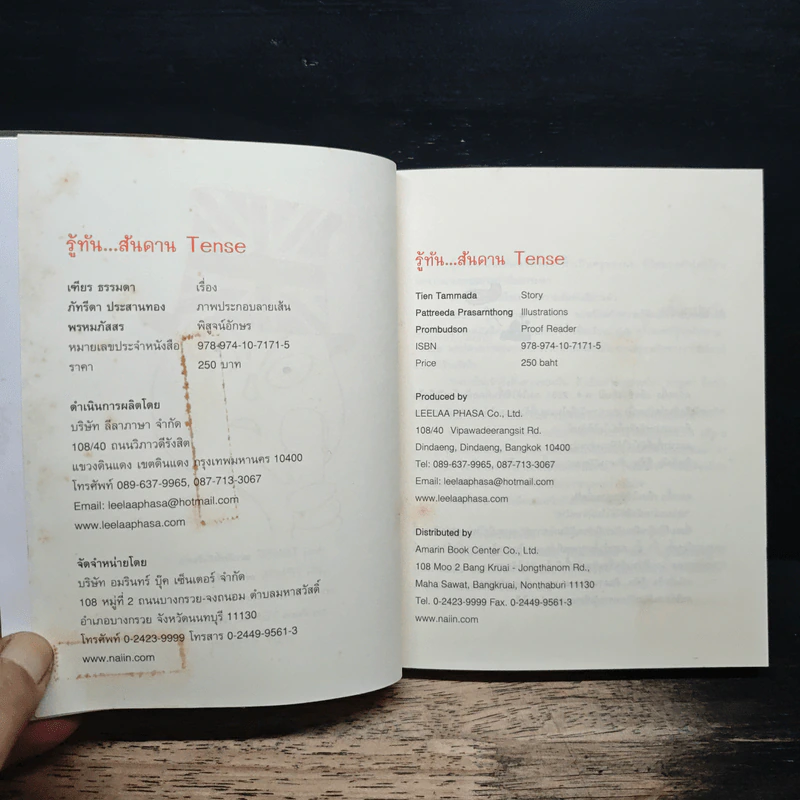 รู้ทัน...สันดาน Tense
เฑียร ธรรมดา เรื่อง
ภัทรีดา ประสานทอง ภาพประกอบลายเส้น
พรหมภัสสร พิสูจน์อักษร
หมายเลขประจำหนังสือ 978-974-10-7171-5
ราคา 250 บาท
ดำเนินการผลิตโดย
บริษัท ลีลาภาษา จำกัด
108/40 ถนนวิภาวดีรังสิต
แขวงดินแดง เขตดินแดง กรุงเทพมหานคร 10400
โทรศัพท์ 089-637-9965, 087-713-3067
Email: leelaaphasa@hotmail.com
www.leelaaphasa.com
จัดจำหน่ายโดย
บริษัท อมรินทร์ บุ๊ค เซ็นเตอร์ จำกัด
108 หมู่ที่ 2 ถนนบางกรวย-จงถนอม ตำบลมหาสวัสดิ์
อำเภอบางกรวย จังหวัดนนทบุรี 11130
โทรศัพท์ 0-2423-9999 โทรสาร 0-2449-9561-3
www.naiin.com
รู้ทัน...สันดาน Tense
Tien Tammada Story
Pattreeda Prasarnthong Illustrations
Prombudson Proof Reader
ISBN 978-974-10-7171-5
Price 250 baht
Produced by
LEELAA PHASA Co., Ltd.
108/40 Vipawadeerangsit Rd.
Dindaeng, Dindaeng, Bangkok 10400
Tel: 089-637-9965, 087-713-3067
Email: leelaaphasa@hotmail.com
www.leelaaphasa.com
Distributed by
Amarin Book Center Co., Ltd.
108 Moo 2 Bang Kruai - Jongthanom Rd.,
Maha Sawat, Bangkruai, Nonthaburi 11130
Tel. 0-2423-9999 Fax. 0-2449-9561-3
www.naiin.com